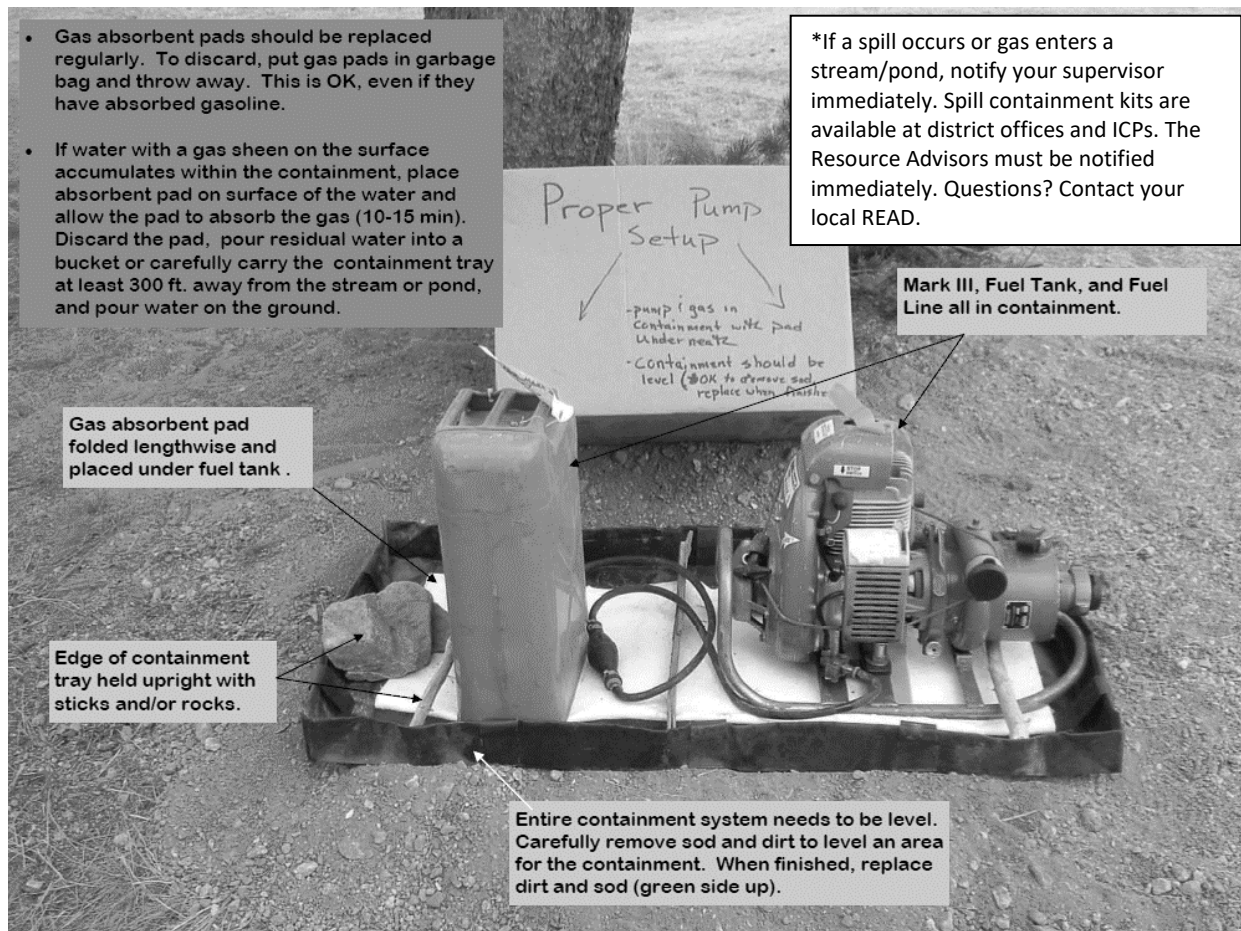 • Gas absorbent pads should be replaced
regularly. To discard, put gas pads in garbage
bag and throw away. This is OK, even if they
have absorbed gasoline.
• If water with a gas sheen on the surface
accumulates within the containment, place
absorbent pad on surface of the water and
allow the pad to absorb the gas (10-15 min).
Discard the pad, pour residual water into a
bucket or carefully carry the containment tray
at least 300 ft. away from the stream or pond,
and pour water on the ground.
*If a spill occurs or gas enters a
stream/pond, notify your supervisor
immediately. Spill containment kits are
available at district offices and ICPs. The
Resource Advisors must be notified
immediately. Questions? Contact your
local READ.
Proper Pump
Setup
-pump & gas in
containment with pad
underneath
-Containment should be
level (OK to remove sod,
replace when finishe
Mark III, Fuel Tank, and Fuel
Line all in containment.
Gas absorbent pad
folded lengthwise and
placed under fuel tank .
Edge of containment
tray held upright with
sticks and/or rocks.
Entire containment system needs to be level.
Carefully remove sod and dirt to level an area
for the containment. When finished, replace
dirt and sod (green side up).